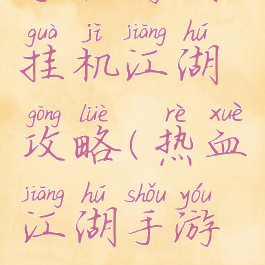 guà jī jiāng hú
挂机江湖
gōng lüè rè xuè
攻略(热血
jiāng hú shǒu yóu
江湖手游